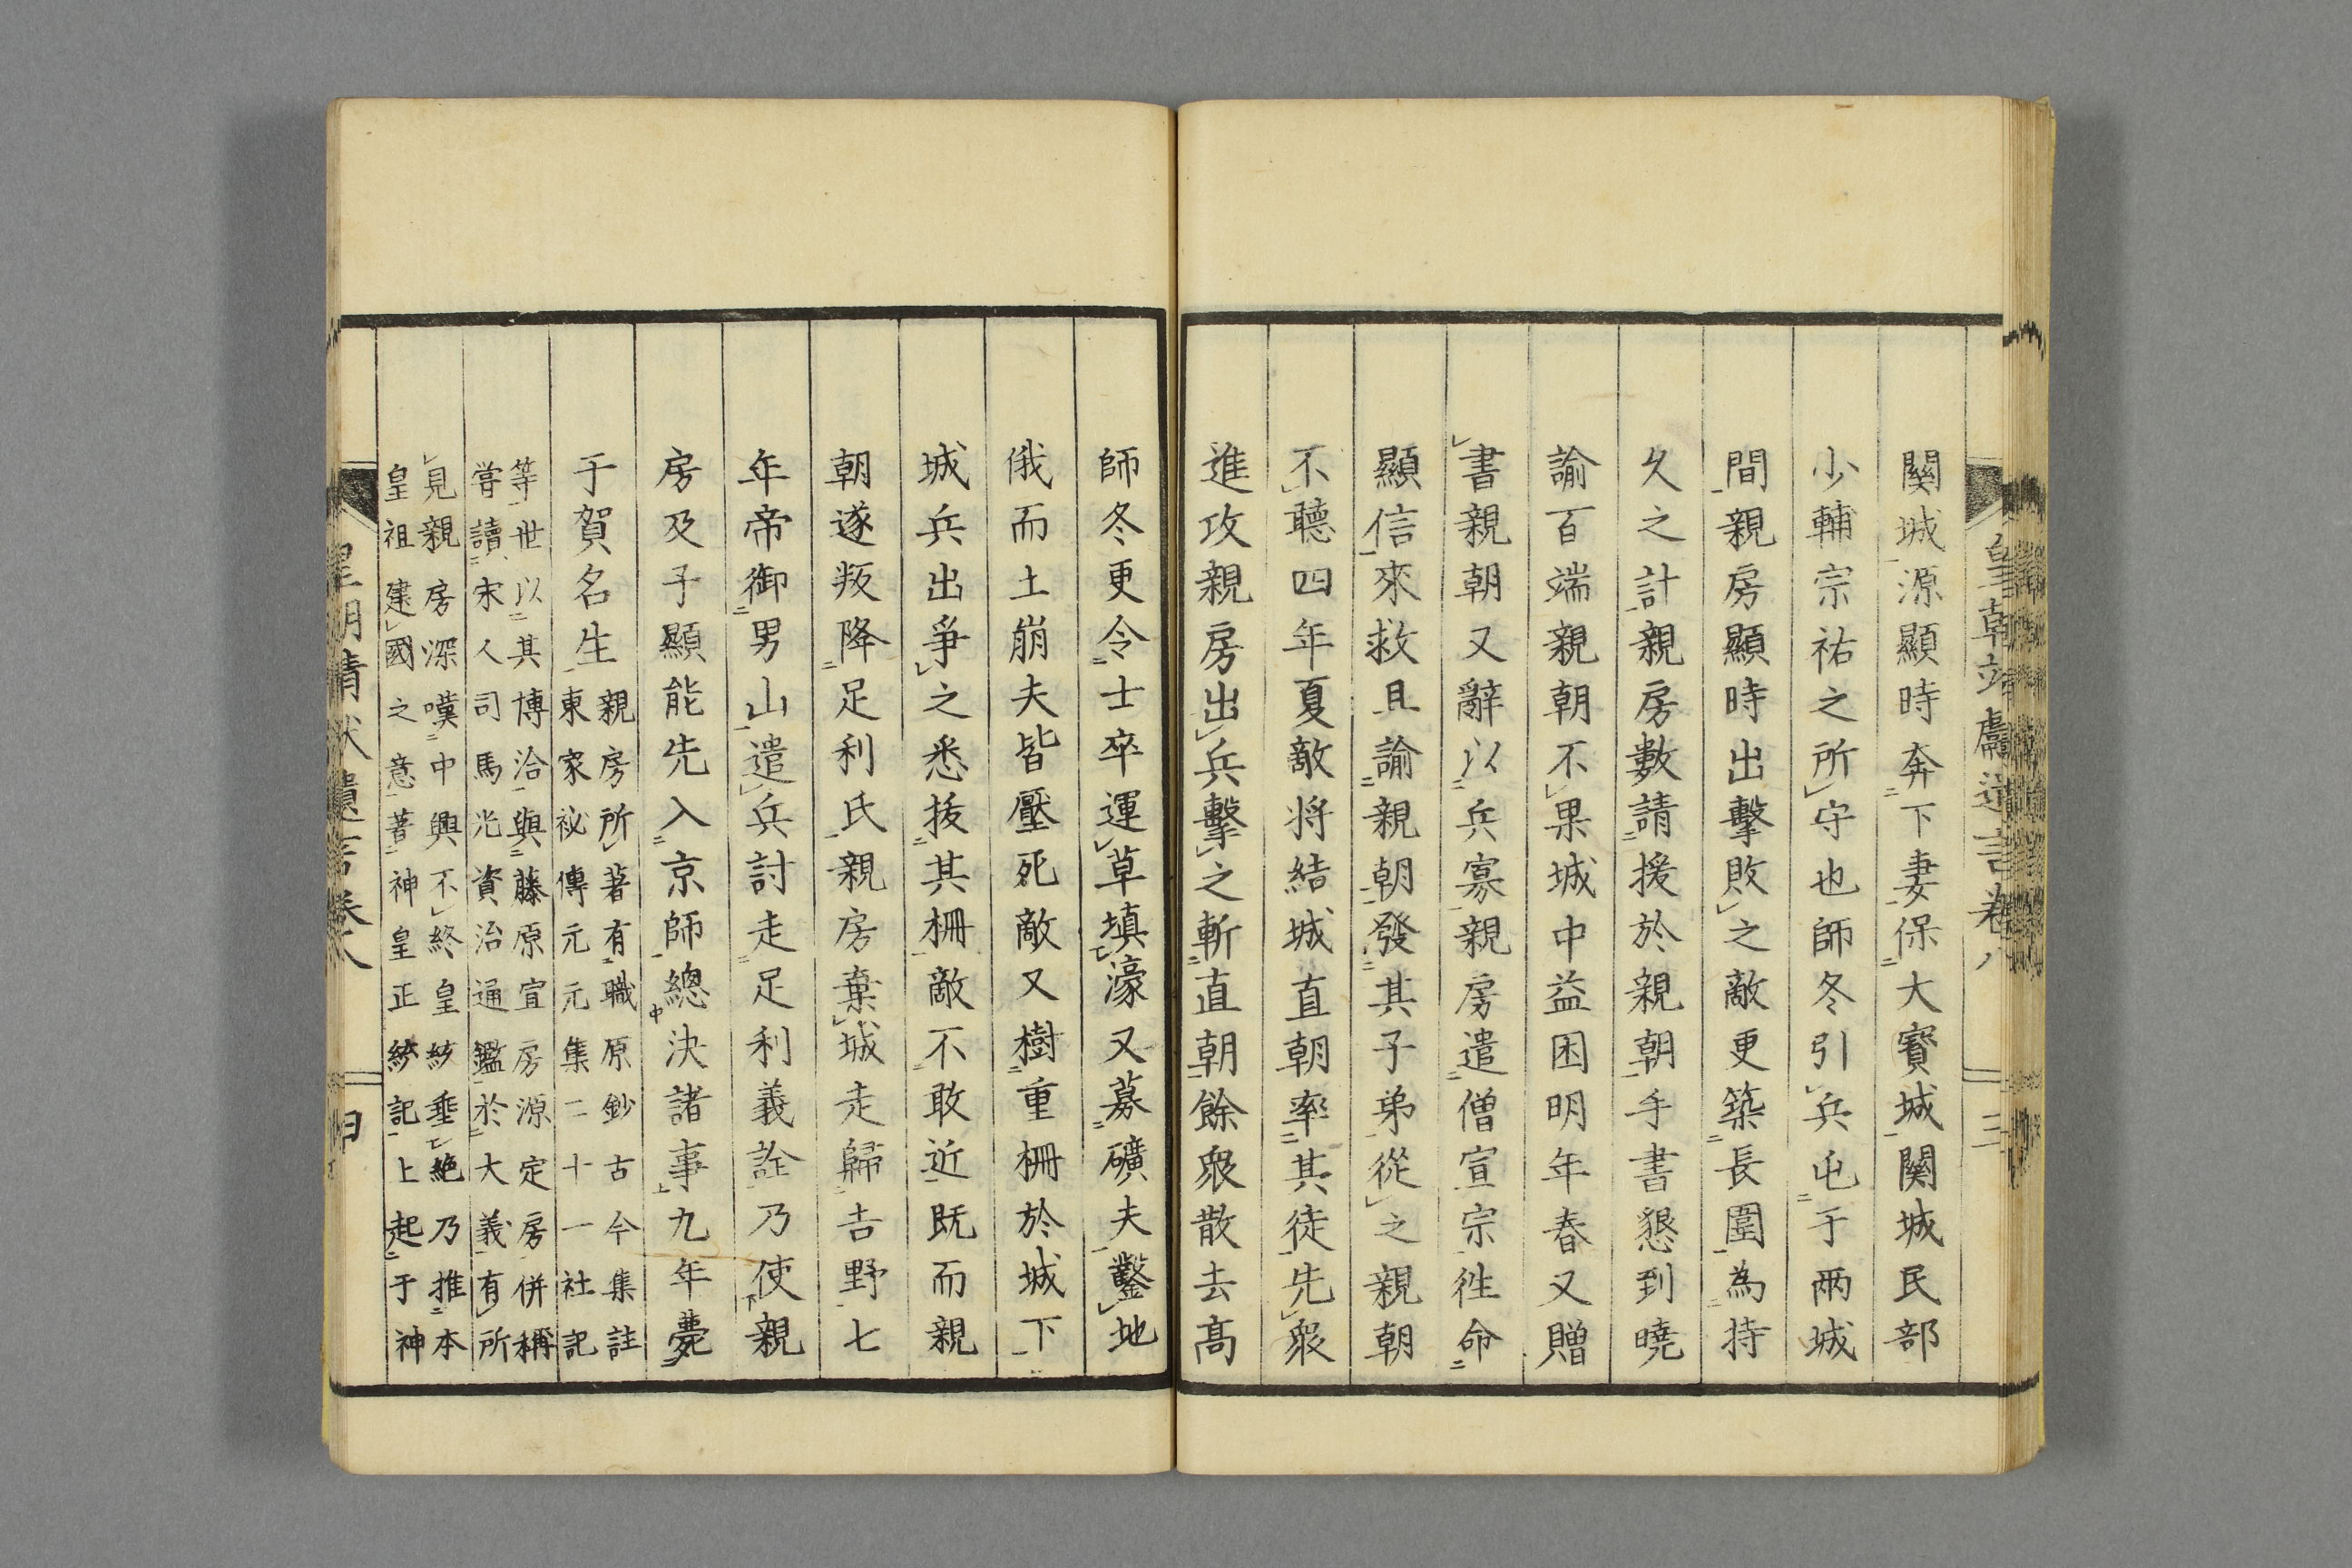 關城源顯時奔下妻保大寶城關城民部
少輔宗祐之所守也師冬引兵屯于兩城
間親房顯時出擊敗之敵更築長圍為持
久之計親房數請援於親朝手書懇到曉
諭百端親朝不果城中益困明年春又贈
書親朝又辭以兵寡親房遣僧宣宗徃命
顯信來救且諭親朝發其子弟從之親朝
不聽四年夏敵將結城直朝率其徒先衆
進攻親房出兵擊之斬直朝餘衆散去高
師冬更令士卒運草填濠又募礦夫鑿地
俄而土崩夫皆壓死敵又樹重柵於城下
城兵出爭之悉拔其柵敵不敢近既而親
朝遂叛降足利氏親房棄城走歸吉野七
年帝御男山遣兵討走足利義詮乃使親
房及子顯能先入京師總決諸事九年薨
于賀名生
親房所著有職原鈔古今集註
東家祕傳元元集二十一社記
等世以其博洽與藤原宣房源定房併稱
嘗讀宋人司馬光資治通鑑於大義有所
見親房深嘆中興不終皇統垂絶乃推本
皇祖建國之意著神皇正統記上起于神